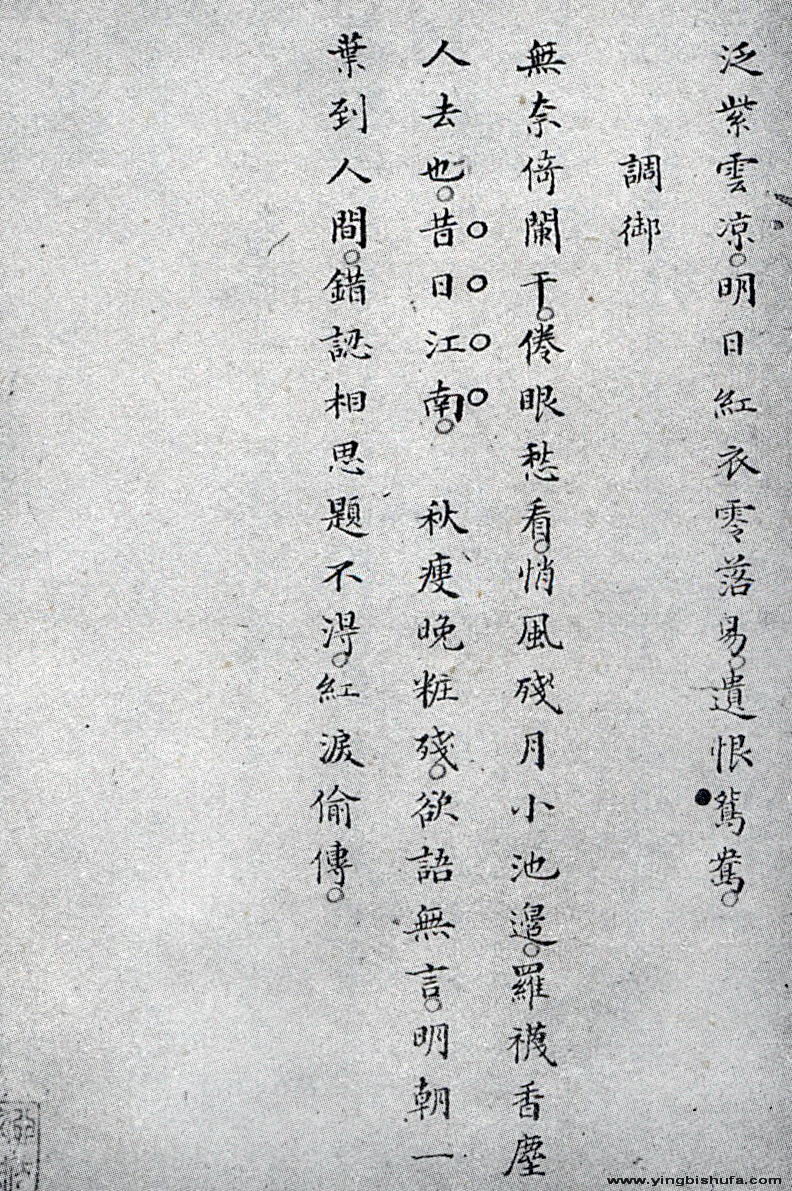 泛紫雲凉。明日紅衣零落易。遺恨鴛鴦。
調御
無奈倚闌干。倦眼愁看。悄風殘月小池邊。羅襪香塵
人去也。昔日江南。 秋瘦晚粧殘。欲語無言。明朝一
葉到人間。錯認相思題不得。紅淚偷傳。
www.yingbishufa.com